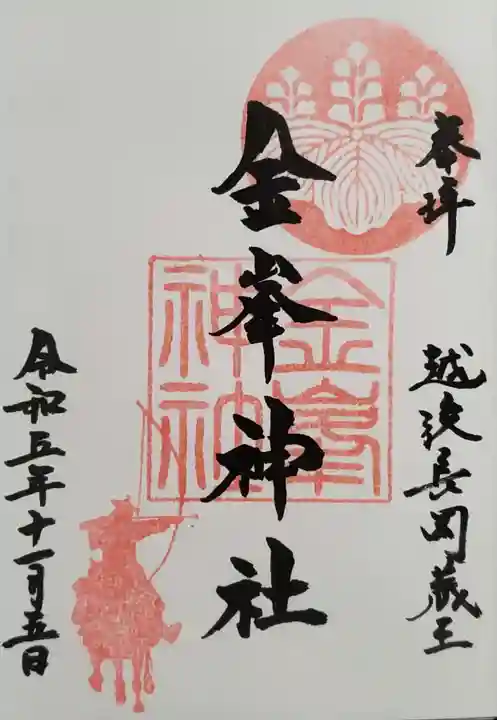 奉拝
越後長岡蔵王
金峯神社
金峯神社
令和五年十一月五日